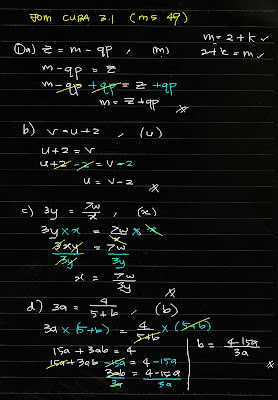 JOM CUBA 3.1 (m/s 49)
m = 2 + k ✓
2 + k = m ✓
1) a) z = m - qp , (m)
m - qp = z
m - qp + qp = z + qp
m = z + qp
b) v = u + 2 , (u)
u + 2 = v
u + 2 - 2 = v - 2
u = v - 2
c) 3y = 7w/x , (x)
3y × x = 7w/x × x
3xy/3y = 7w/3y
x = 7w/3y
d) 3a = 4/(5+b) , (b)
3a × (5+b) = 4/(5+b) × (5+b)
15a + 3ab = 4
15a + 3ab - 15a = 4 - 15a
3ab/3a = (4 - 15a)/3a
b = (4 - 15a)/3a